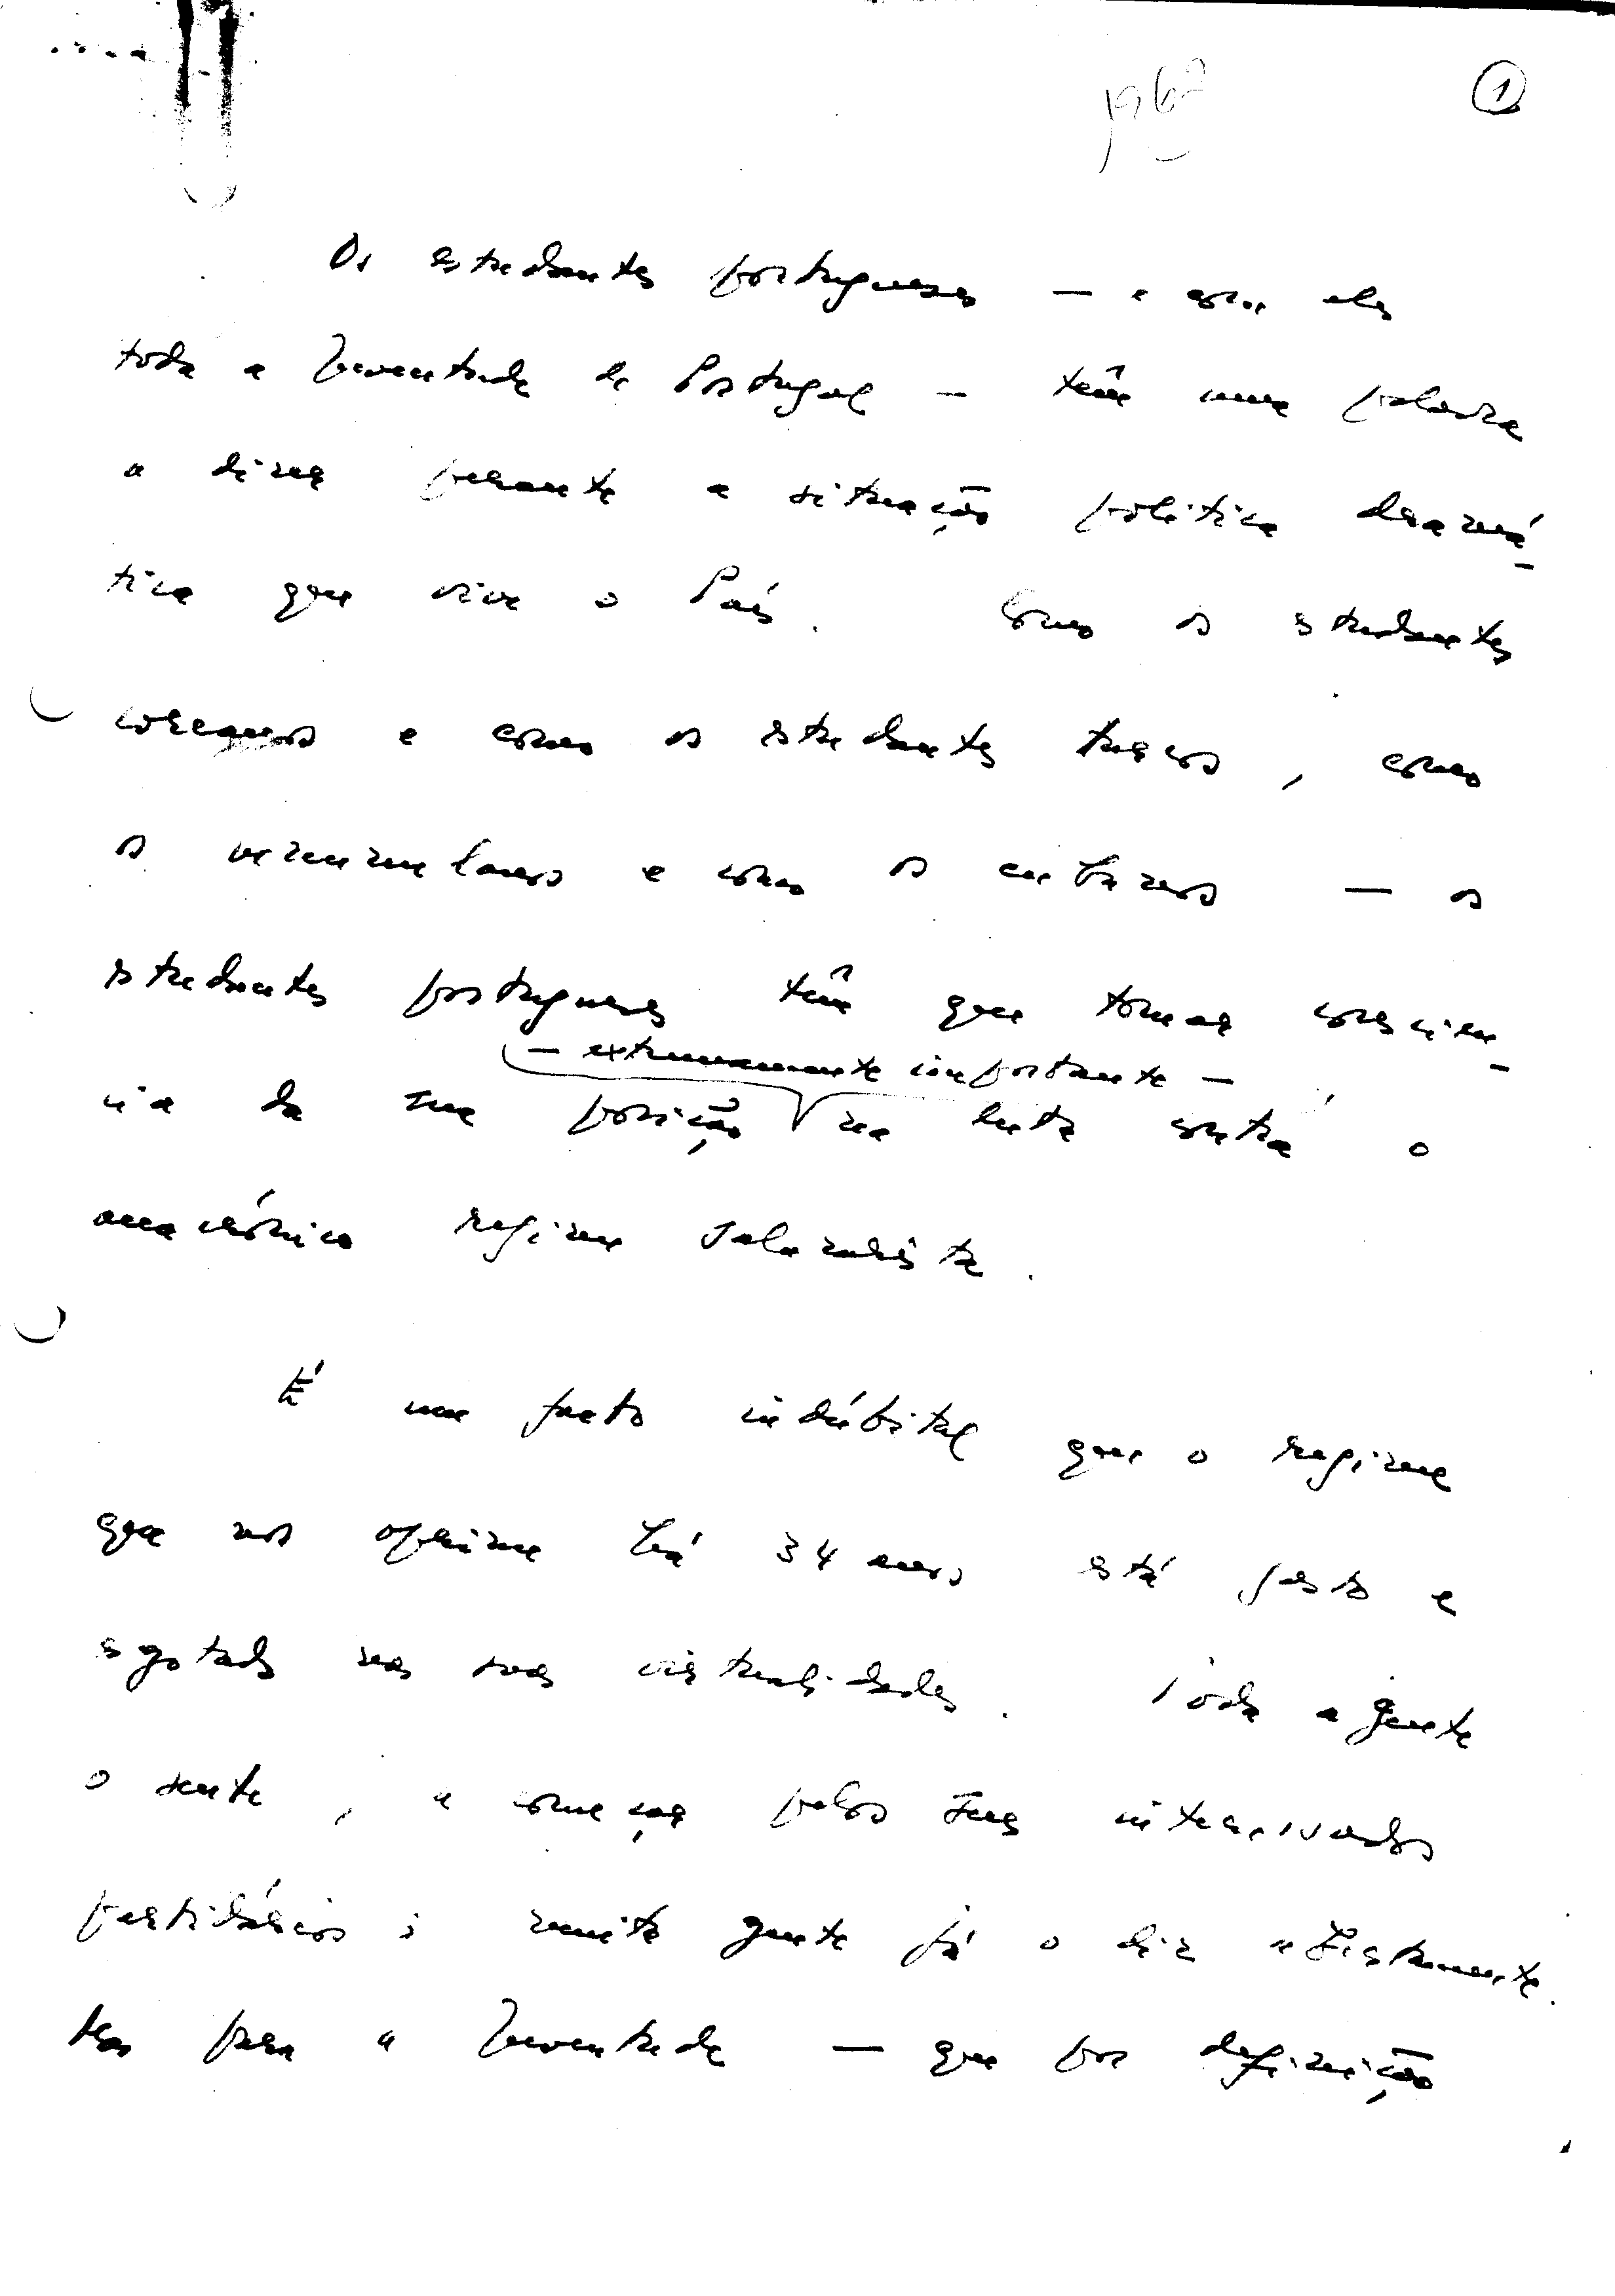 1962
1
Os estudantes portugueses — e com eles
toda a Juventude de Portugal — têm uma palavra
a dizer perante a situação política dramá-
tica que vive o País. Como os estudantes
coreanos e como os estudantes turcos, como
os venezuelanos e como os cubanos — os
estudantes portugueses têm que tomar consciên-
— extremamente importante —
cia da sua posição na luta contra o
anacrónico regime salazarista.
É um facto indúbital que o regime
que nos oprime há 34 anos está gasto e
esgotado nas suas virtualidades. Toda a gente
o sente, a começar pelos seus interessados
partidários; muita gente já o diz abertamente.
Mas para a Juventude — que por definição